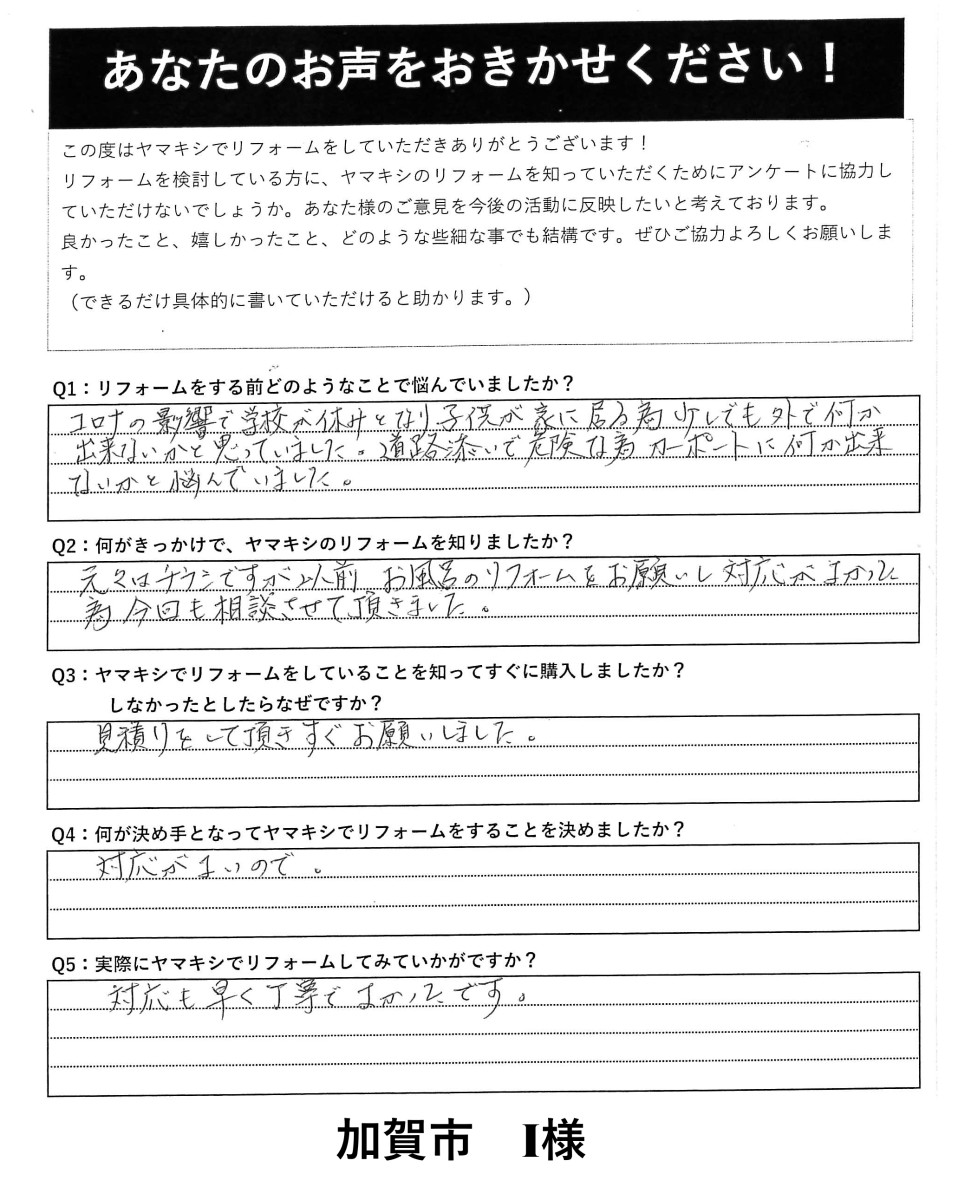 あなたのお声をおきかせください！
この度はヤマキシでリフォームをしていただきありがとうございます！
リフォームを検討している方に、ヤマキシのリフォームを知っていただくためにアンケートに協力し
ていただけないでしょうか。あなた様のご意見を今後の活動に反映したいと考えております。
良かったこと、嬉しかったこと、どのような些細な事でも結構です。ぜひご協力よろしくお願いしま
す。
（できるだけ具体的に書いていただけると助かります。）
Q1：リフォームをする前どのようなことで悩んでいましたか？
コロナの影響で学校が休みとなり子供が家に居る為少しでも外で何か
出来ないかと思っていました。道路添いで危険な為カーポートに何か出来
ないかと悩んでいました。
Q2：何がきっかけで、ヤマキシのリフォームを知りましたか？
元々はチラシですが以前 お風呂のリフォームをお願いし対応がよかった
為今回も相談させて頂きました。
Q3：ヤマキシでリフォームをしていることを知ってすぐに購入しましたか？
しなかったとしたらなぜですか？
見積りをして頂きすぐお願いしました。
Q4：何が決め手となってヤマキシでリフォームをすることを決めましたか？
対応がよいので。
Q5：実際にヤマキシでリフォームしてみていかがですか？
対応も早く丁寧でよかったです。
加賀市　I様